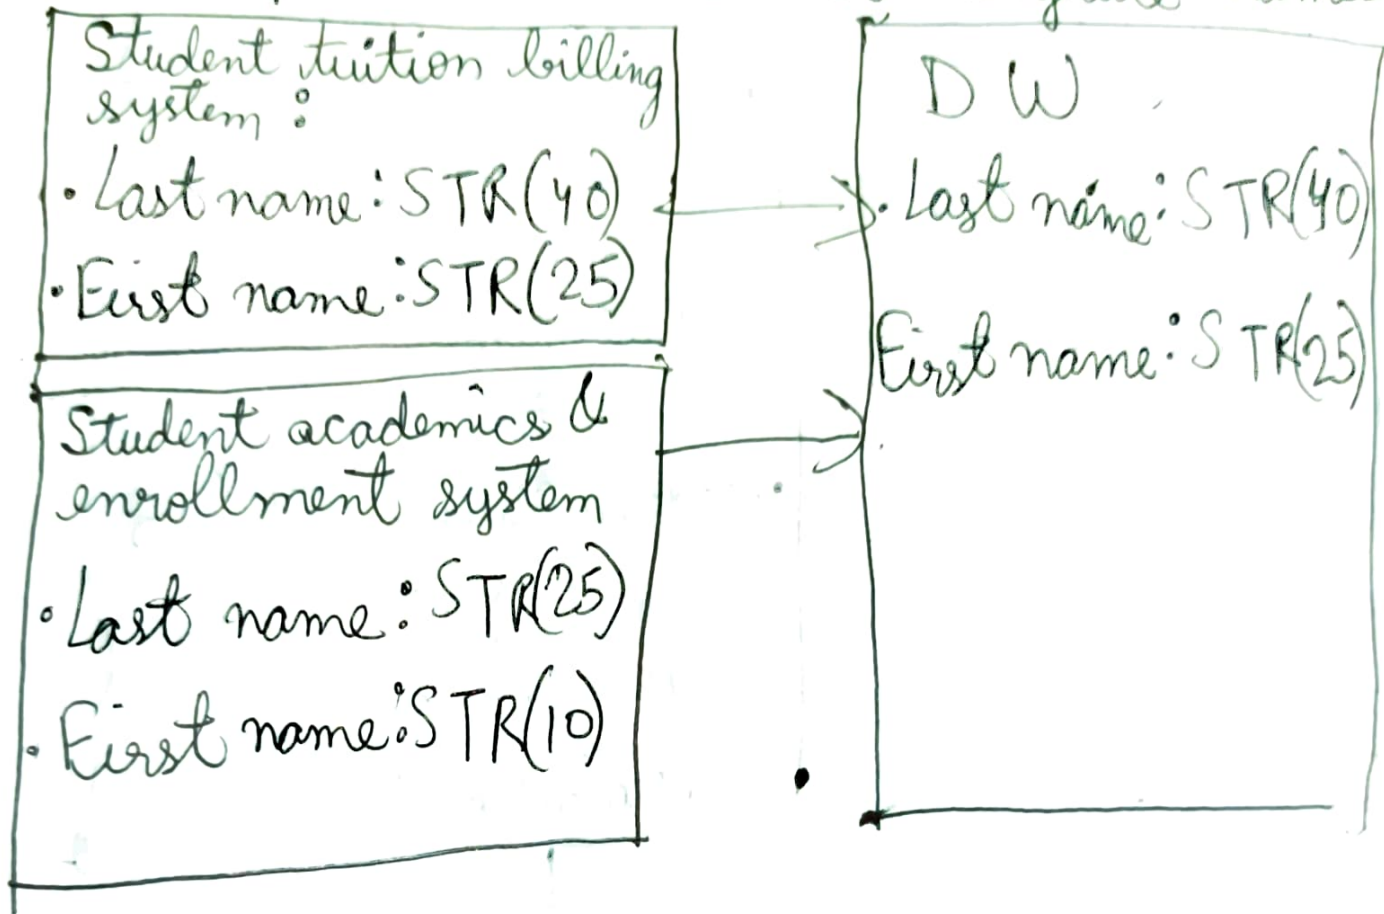 Student tuition billing
system :
· Last name : STR(40)
· First name : STR(25)
Student academics &
enrollment system
· Last name : STR(25)
· First name : STR(10)
DW
· Last name : STR(40)
First name : STR(25)